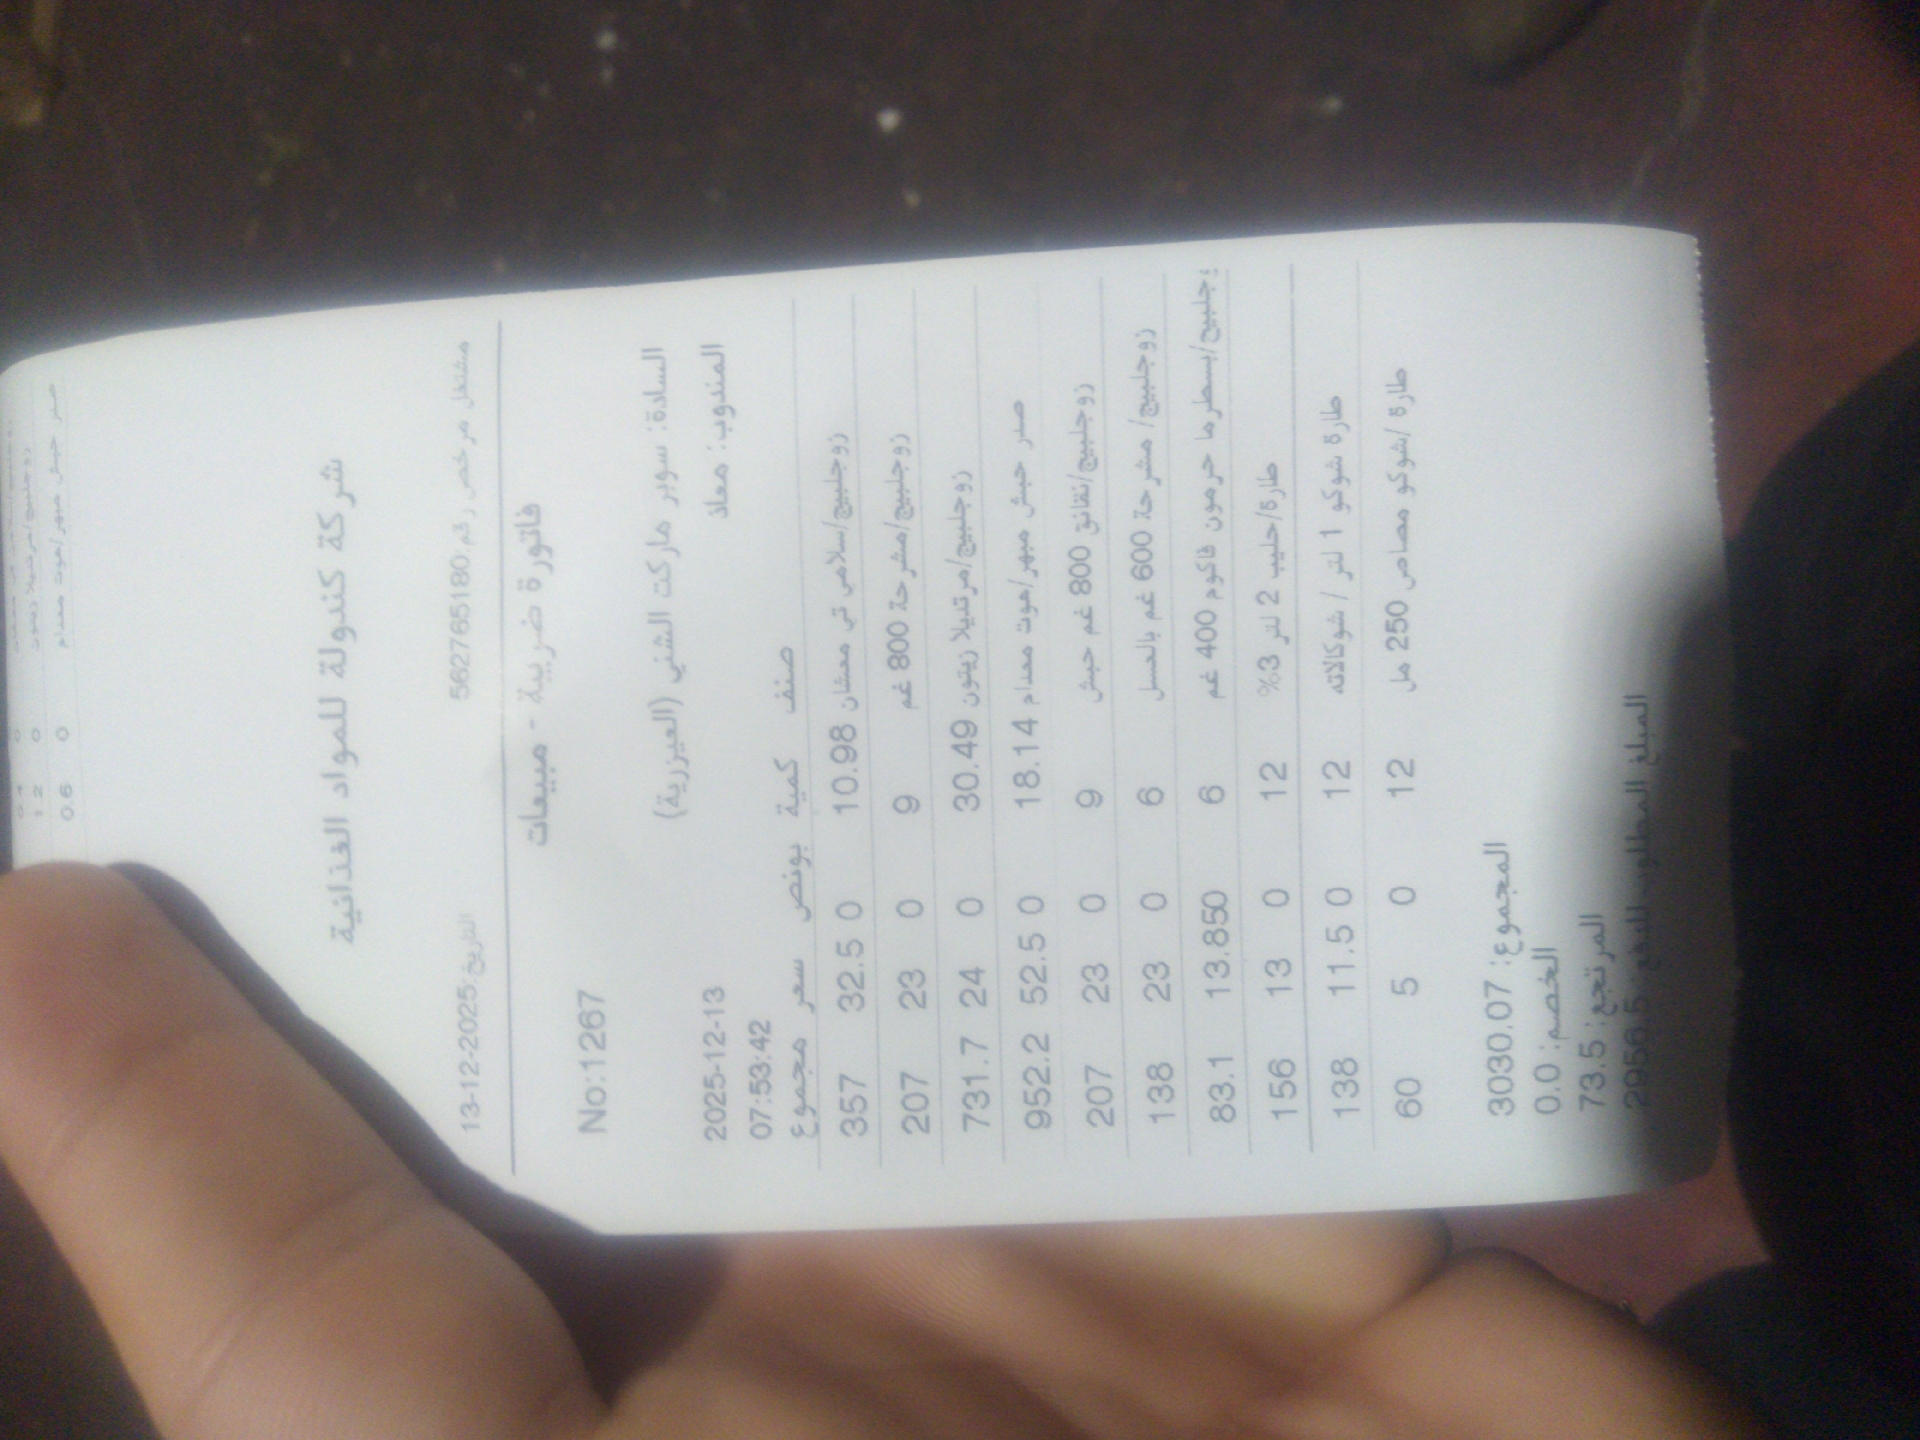 0
1.2 0
0.6 0 صدر حبش مبهر/موت مدام
شركة كندولة للمواد الغذائية
التاريخ:2025-12-13 مشتغل مرخص رقم:562765180
فاتورة ضريبية - مبيعات
No:1267
السادة: سوبر ماركت الشني (العيزرية)
2025-12-13 المندوب: معاذ
07:53:42
مجموع سعر بونص كمية صنف
357 32.5 0 10.98 زوجلبيج/سلامي تي معشان
207 23 0 9 زوجلبيج/مشرحة 800 غم
731.7 24 0 30.49 زوجلبيج/مرتديلا زيتون
952.2 52.5 0 18.14 صدر حبش مبهر/موت معدام
207 23 0 9 زوجلبيج/نقانق 800 غم حبش
138 23 0 6 زوجلبيج/ مشرحة 600 غم بالعسل
83.1 13.850 6 جلبيج/بسطرما حرمون فاكوم 400 غم
156 13 0 12 طارة/حليب 2 لتر 3%
138 11.5 0 12 طارة شوكو 1 لتر / شوكالاته
60 5 0 12 طارة /شوكو مصاص 250 مل
المجموع: 3030.07
الخصم: 0.0
المرتجع: 73.5
المبلغ المطلوب للدفع: 2956.5